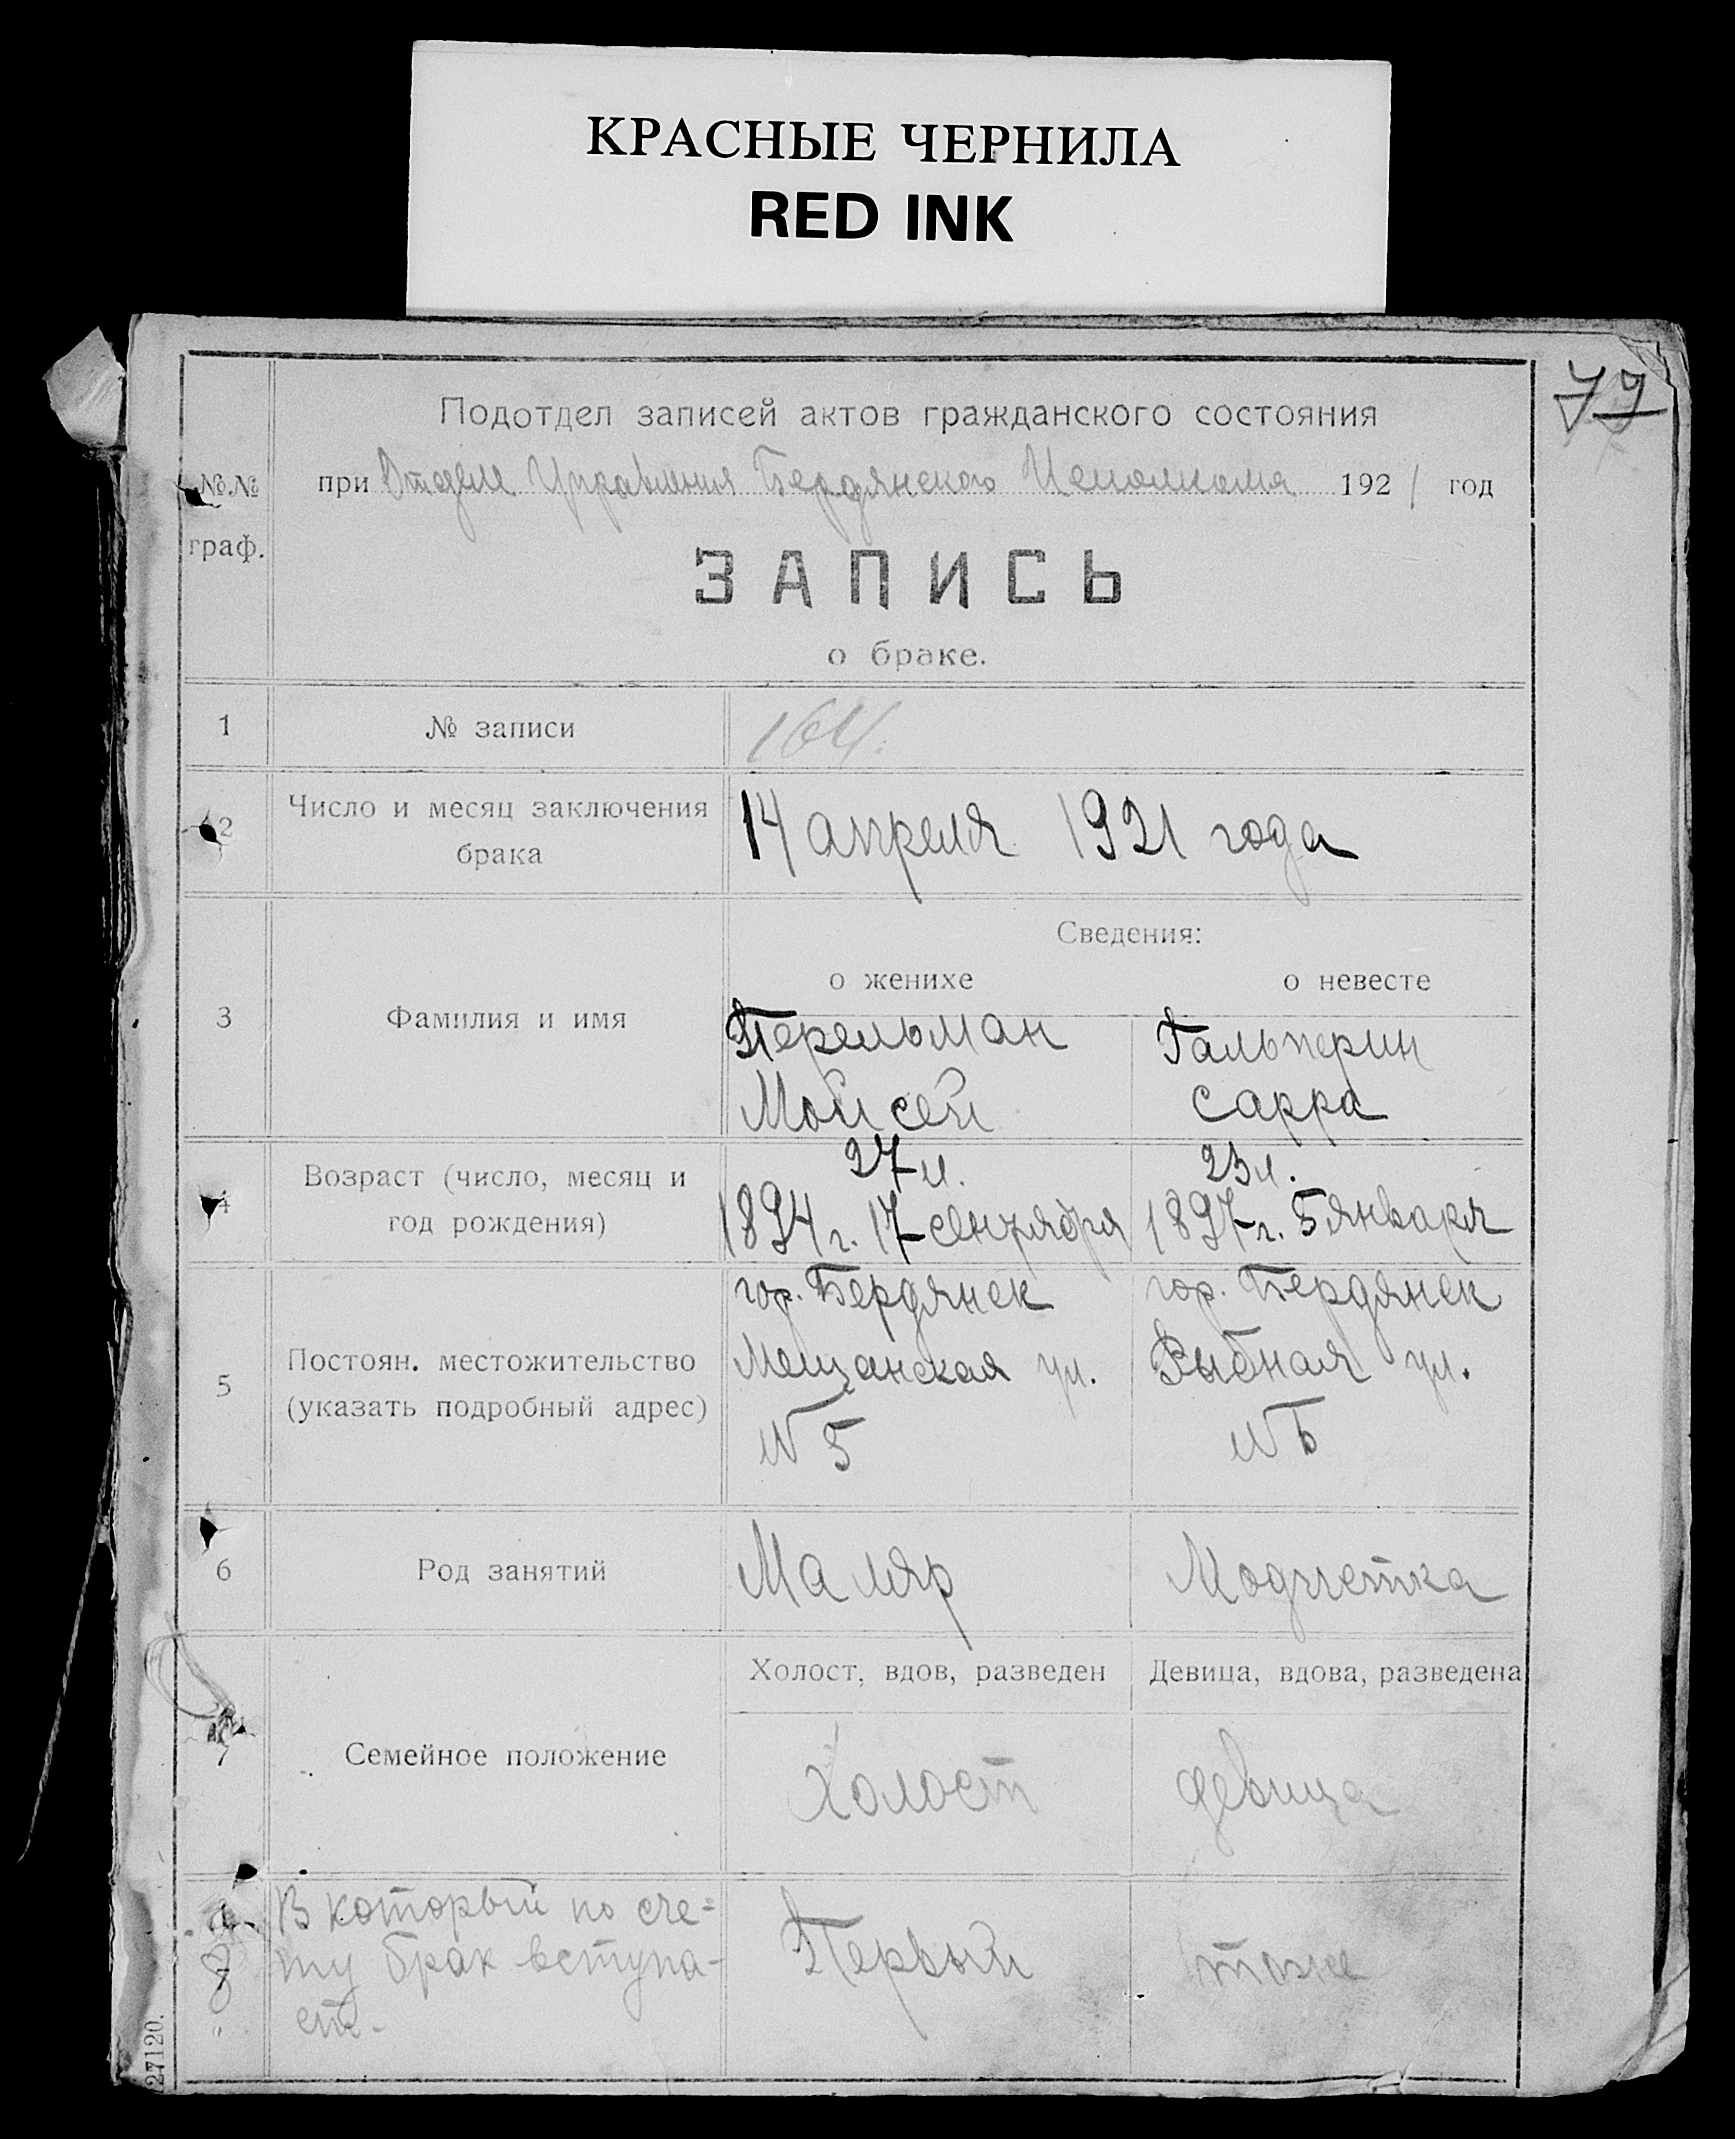 КРАСНЫЕ ЧЕРНИЛА
RED INK
77
Подотдел записей актов гражданского состояния
№№ при Отделе Управления Бердянского Исполкома 1921 год
граф.
ЗАПИСЬ
о браке.
1 № записи 164.
2 Число и месяц заключения брака 14 апреля 1921 года
Сведения:
о женихе о невесте
3 Фамилия и имя Перельман Гальперин
Моисей Сарра
27 л. 23 л.
4 Возраст (число, месяц и
год рождения) 1894 г. 17 сентября 1897 г. 5 января
гор. Бердянск гор. Бердянск
5 Постоян. местожительство Мещанская ул. Рыбная ул.
(указать подробный адрес) №5
6 Род занятий Маляр Модистка
Холост, вдов, разведен Девица, вдова, разведена
7 Семейное положение Холост девица
8 В который по сче=
ту брак вступа- Первый тоже
ет.
27120.